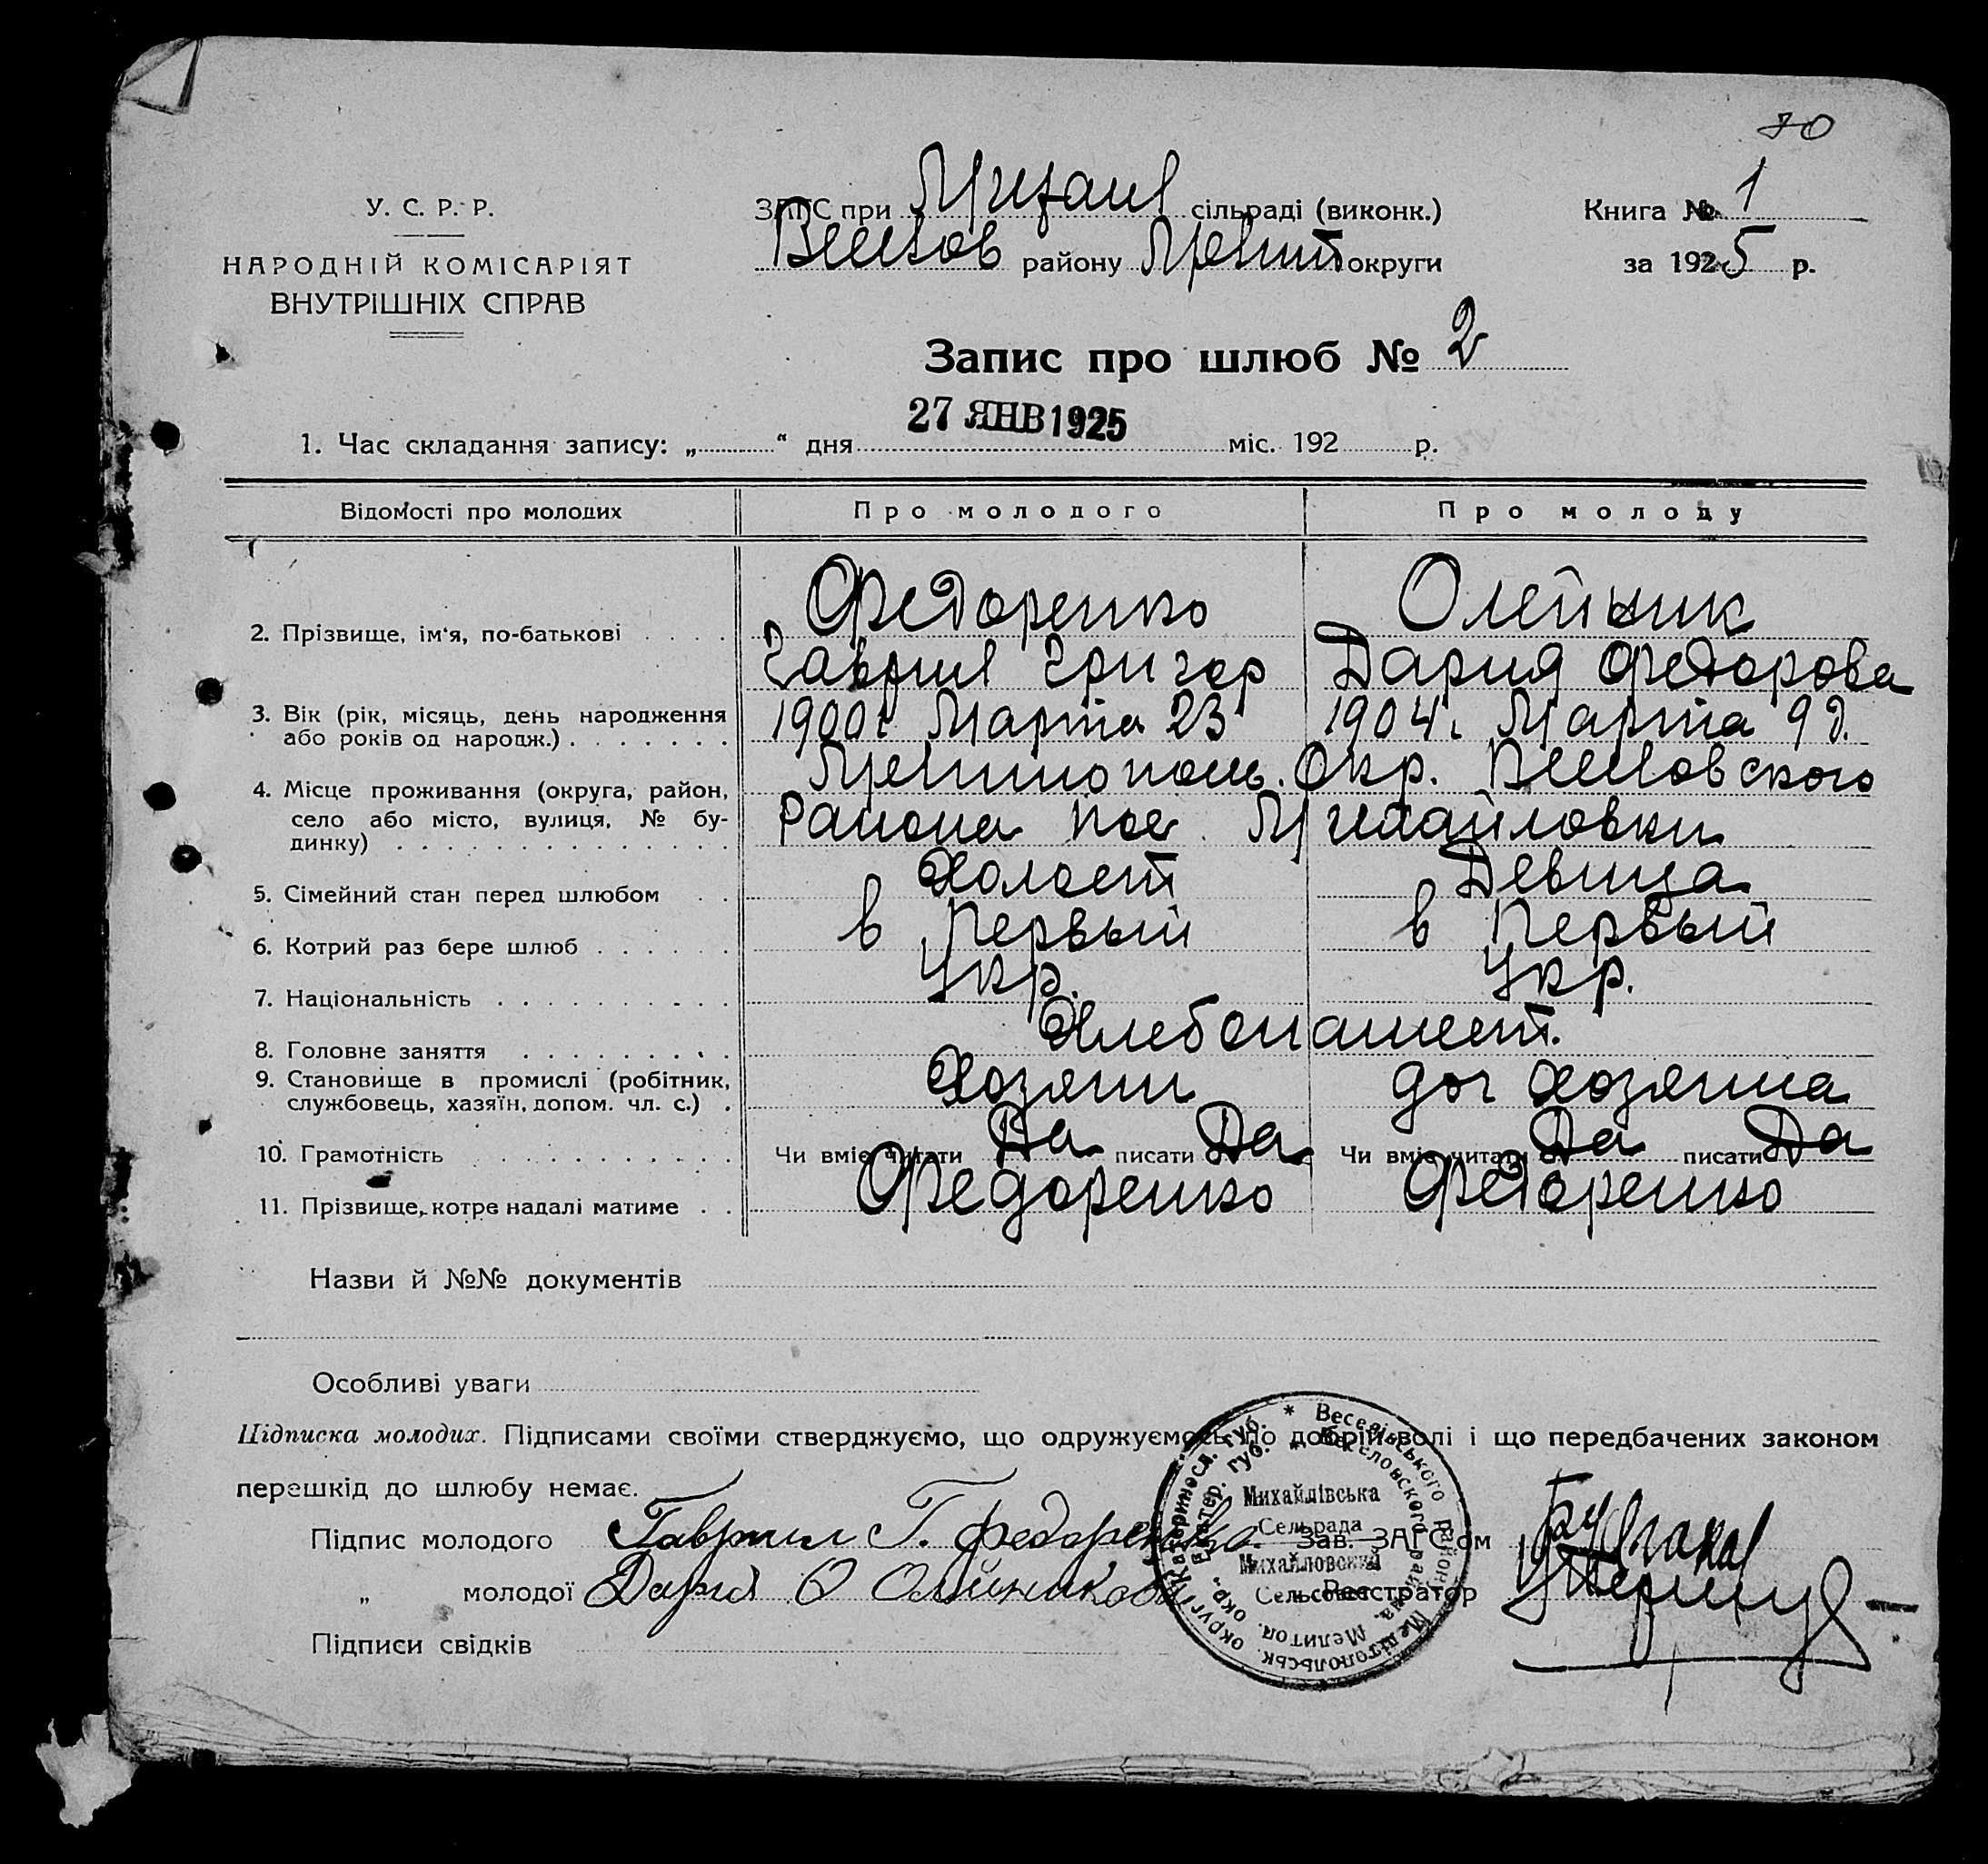 70
У. С. Р. Р.
НАРОДНІЙ КОМІСАРІЯТ
ВНУТРІШНІХ СПРАВ
ЗАГС при Михайл сільраді (виконк.)
Веселов району Мелит округи
Книга № 1
за 1925 р.
Запис про шлюб № 2
1. Час складання запису: „ “ дня 27 ЯНВ 1925 міс. 192 р.
Відомості про молодих Про молодого Про молоду
2. Прізвище, ім‘я, по-батькові Федоренко Олейник
Гаврил Григор Дария Федорова
3. Вік (рік, місяць, день народження або років од народж.) 1900 г. Марта 23 1904 г. Марта 9 д.
4. Місце проживання (округа, район, село або місто, вулиця, № будинку) Мелитополь. Окр. Веселовского
Района пос. Михайловки
5. Сімейний стан перед шлюбом Холост Девица
6. Котрий раз бере шлюб в Первый в Первый
7. Національність Укр. Укр.
8. Головне заняття Хлебопашест.
9. Становище в промислі (робітник, службовець, хазяїн, допом. чл. с.) Хозяин доч хозяина
10. Грамотність Чи вміє читати Да писати Да Чи вміє читати Да писати Да
11. Прізвище, котре надалі матиме Федоренко Федоренко
Назви й №№ документів
Особливі уваги
Підписка молодих. Підписами своїми стверджуємо, що одружуємось по добрій волі і що передбачених законом
перешкід до шлюбу немає.
Підпис молодого Гаврил Г. Федоренко. Зав. ЗАГС'ом
„ молодої Дария О Олійникова Реєстратор
Підписи свідків
Катериносл. губ. * Веселівського району Мелітопольськ. округи
Екатер. губ. * Веселовского района. Мелитоп. окр.
Михайлівська
Сельрада
Михайловский
Сельсовет